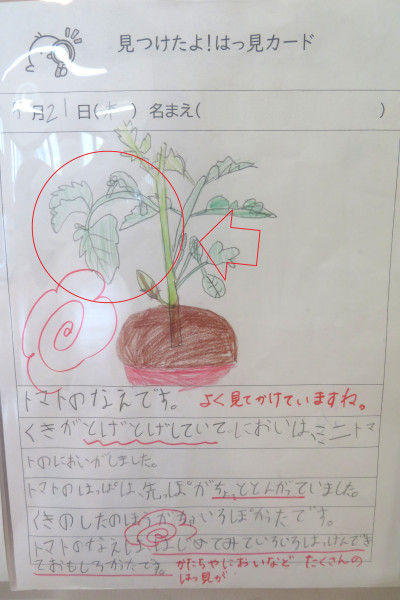 見つけたよ!はっ見カード
月21日(木) 名まえ( )
トマトのなえです。 よく見てかけていますね。
くきがとげとげしていてにおいは、ミニトマ
トのにおいがしました。
トマトのはっぱは、先っぽがちょっととんがっていました。
くきのしたのほうがちゃいろぽかったです。
トマトのなえははじめてみていろいろはっけんでき
ておもしろかたです。 かたちやにおいなど たくさんの
はっ見が